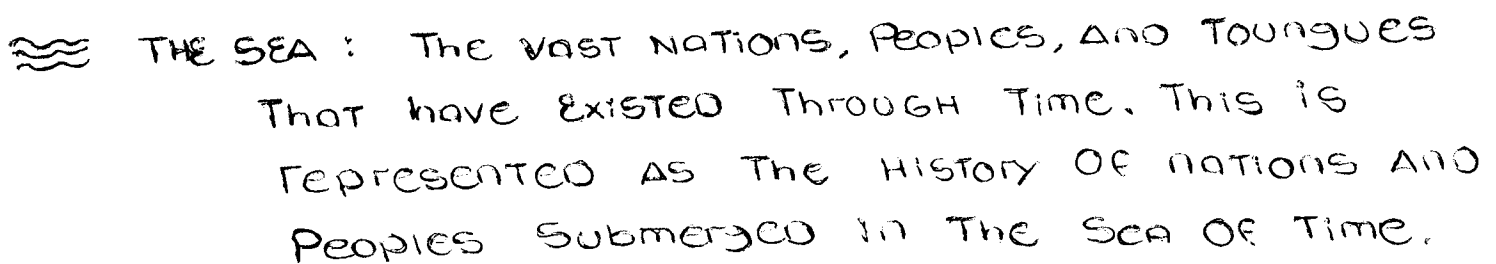 THE SEA: The Vast Nations, Peoples, And Toungues
That have Existed Through Time. This is
represented As The History Of nations And
Peoples Submerged in The Sea Of Time.